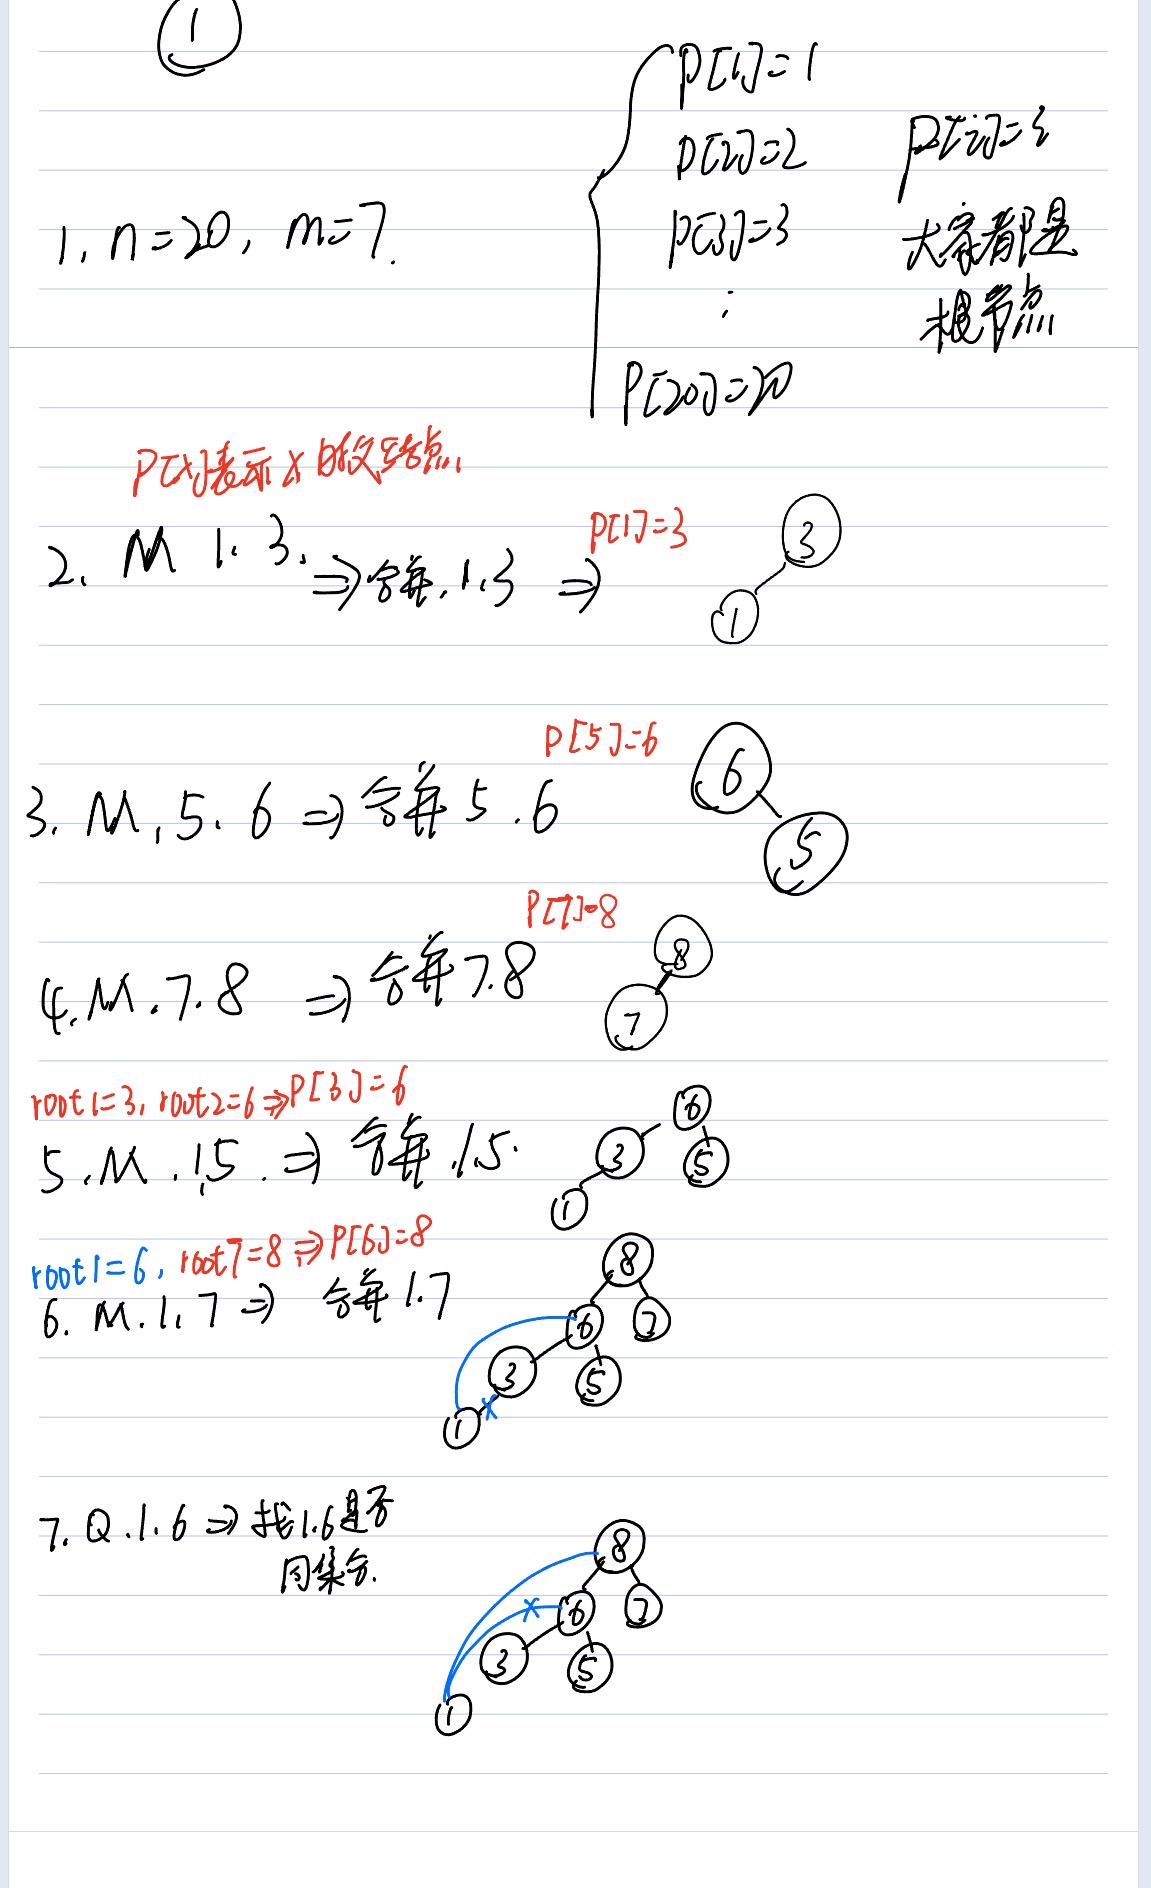 ①
P[1]=1
P[2]=2
P[i]=i
P[3]=3
大家都是
1, n=20, m=7.
⋮
根节点
P[20]=20
P[x]表示x的父结点.
2. M 1. 3. ⇒合并.1.3 ⇒ P[1]=3
3
1
P[5]=6
3. M, 5. 6 ⇒ 合并5.6
6
5
P[7]=8
4. M. 7. 8 ⇒ 合并7.8
8
7
root1=3, root2=6 ⇒P[3]=6
5. M. 1,5. ⇒ 合并.1.5.
6
3 5
1
root1=6, root7=8 ⇒P[6]=8
6. M. 1, 7 ⇒ 合并1.7
8
6 7
3 5
1
7. Q. 1. 6 ⇒ 找1.6是否
同集合.
8
6 7
3 5
1